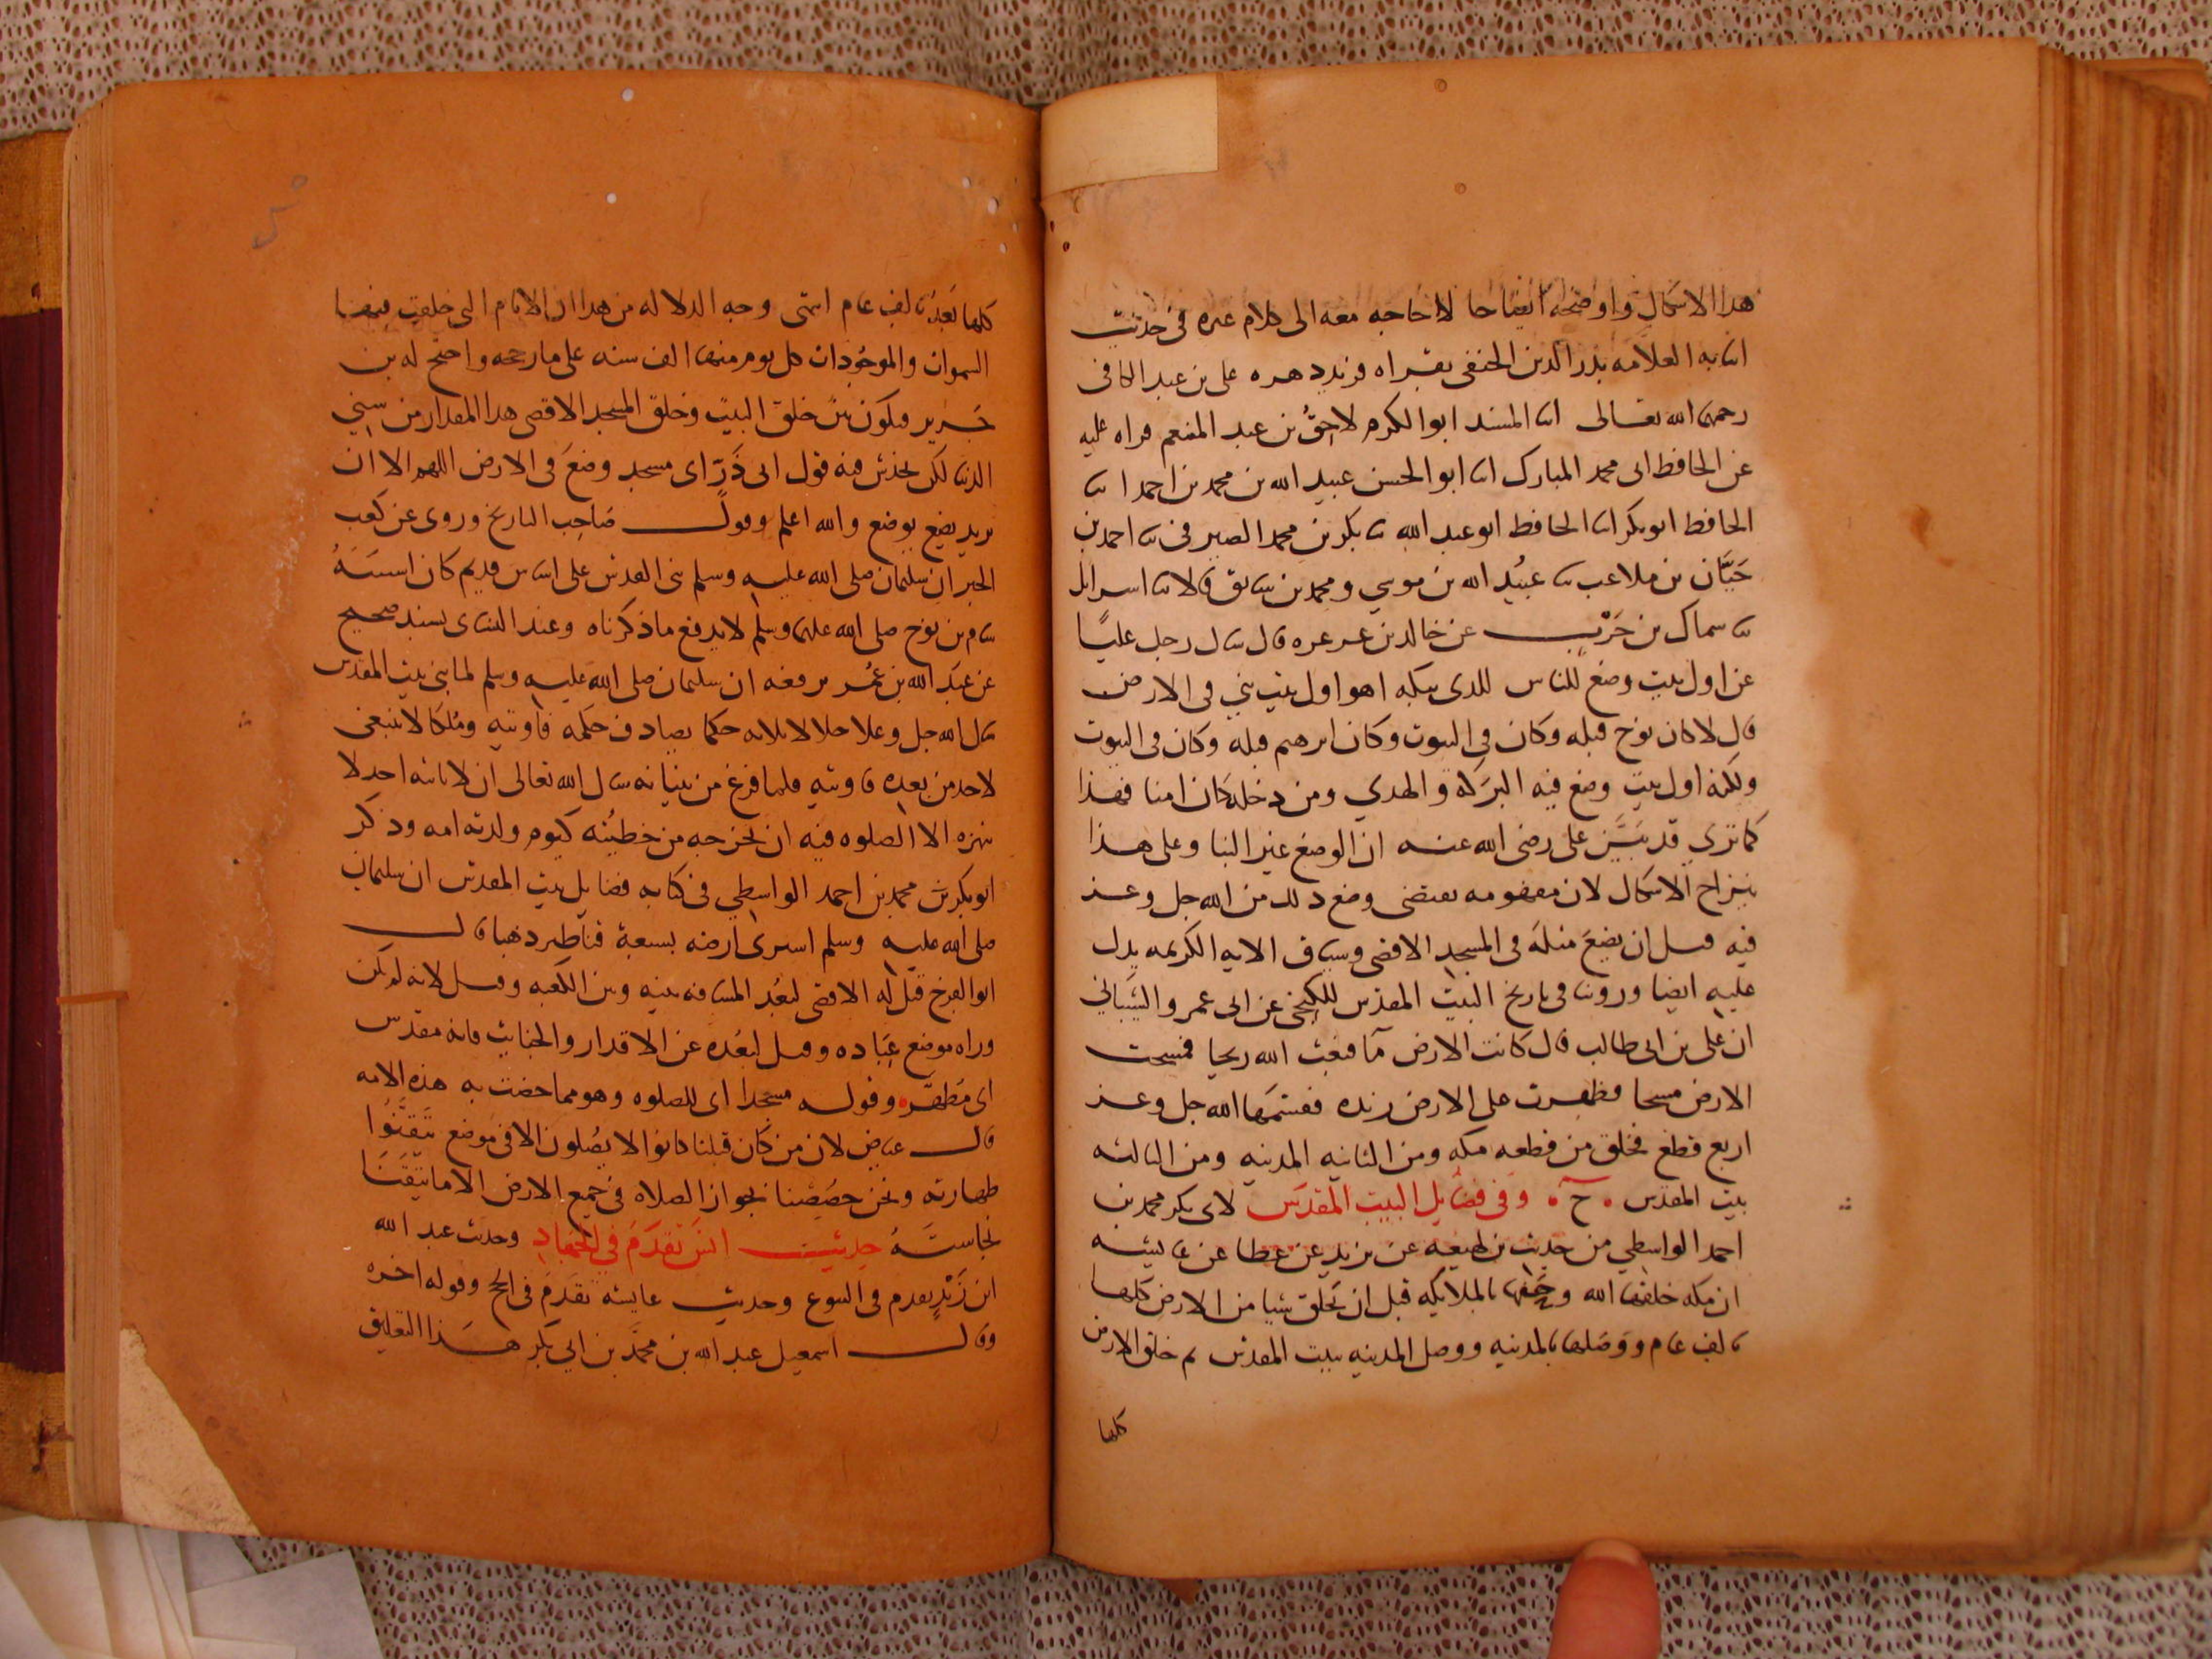 هذا الاشكال واوضحه ايضاحا لا حاجه معه الى كلام غيره في حديث
انبا به العلامه بدر الدين الحنفى بقراه على بن عبد الكافى
رحمهما الله تعالى انبا المسند ابو الكرم لاحق بن عبد المنعم قراه عليه
عن الحافظ ابى محمد المبارك انبا ابو الحسن عبيد الله بن محمد بن احمد انبا
الحافظ ابو بكر انبا الحافظ ابو عبد الله ثنا بكر بن محمد الصيرفى ثنا احمد بن
حيان بن ملاعب ثنا عبيد الله بن موسي ومحمد بن سابق قالا ثنا اسرائل
ثنا سماك بن حرب عن خالد بن عرعره قال سال رجل عليا
عن اول بيت وضع للناس للذى ببكه اهو اول بيت بني في الارض
قال لا كان نوح قبله وكان في البيوت وكان ابرهيم قبله وكان في البيوت
ولكنه اول بيت وضع فيه البركة والهدي ومن دخله كان امنا فهذا
كما تري قد بين على رضى الله عنه ان الوضع غير البنا وعلى هذا
ينزاح الاشكال لان مفهومه يقتضى وضع ذلك من الله جل وعز
فيه قبل ان يضع مثله في المسجد الاقصى وسياق الايه الكريمه يدل
عليه ايضا وروينا في تاريخ البيت المقدس عن ابى عمرو الشيبانى
ان على بن ابى طالب قال كانت الارض مآ فبعث الله ريحا فمسحت
الارض مسحا فظهرت على الارض زبده فقسمها الله جل وعز
اربع قطع فخلق من قطعه مكه ومن الثانيه المدينه ومن الثالثه
بيت المقدس ح وفى فضايل البيت المقدس لابى بكر محمد بن
احمد الواسطي من حديث بن لهيعه عن يزيد عن عطا عن عايشه
ان مكه خلقها الله وحفها بالملايكه قبل ان يخلق شيا من الارض كلها
بالف عام ووصلها بالمدينه ووصل المدينه ببيت المقدس ثم خلق الارض
كلها
كلها بعد بالف عام انتهى وجه الدلاله من هذا ان الايام التى خلقت فيها
السموات والموجودات كل يوم منها الف سنه على ما رجحه واحتج له بن
جرير فيكون بين خلق البيت وخلق المسجد الاقصى هذا المقدار من سني
الدنيا لكن يخدش فيه قول ابى ذر اى مسجد وضع في الارض اللهم الا ان
يريد بوضع والله اعلم وقول صاحب التاريخ وروى عن كعب
الحبر ان سليمان صلى الله عليه وسلم بنى القدس على اساس قديم كان اسسه
سام بن نوح صلى الله عليهما وسلم لا يدفع ما ذكرناه وعند النساى بسند صحيح
عن عبد الله بن عمر يرفعه ان سليمان صلى الله عليه وسلم لما بنى بيت المقدس
سال الله جل وعلا خلالا ثلاثه حكما يصادف حكمه فاوتيه وملكا لا ينبغى
لاحد من بعده فاوتيه فلما فرغ من بنيانه سال الله تعالى ان لا ياتيه احد لا
ينهزه الا الصلوه فيه ان تخرجه من خطيئته كيوم ولدته امه وذكر
ابو بكر محمد بن احمد الواسطي في كتابه فضايل بيت المقدس ان سليمان
صلى الله عليه وسلم اشترى ارضه بسبعة قناطير ذهبا قال
ابو الفرج قيل له الاقصى لبعد المسافه بينه وبين الكعبه وقيل لانه لم يكن
وراه موضع عباده وقيل لبعده عن الاقذار والخبائث فانه مقدس
اى مطهر وقوله مسجدا اى للصلوه وهو مما خصت به هذه الامه
قال عياض لان من كان قبلنا كانوا لا يصلون الا في موضع تيقنوا
طهارته ونحن خصصنا بجواز الصلاه في جميع الارض الا ما تيقنا
نجاسته حديث انس تقدم في الجهاد وحديث عبد الله
ابن زيد تقدم في البيوع وحديث عايشه تقدم في الحج وقوله اخره
وقال اسمعيل عبد الله بن محمد بن ابي بكر هذا التعليق